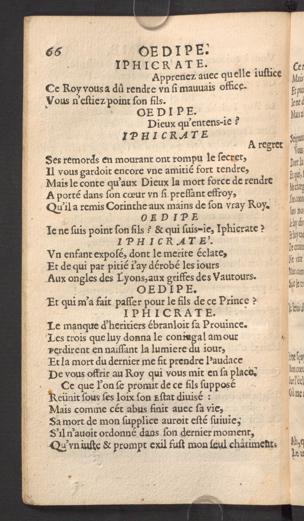 66
OEDIPE.
IPHICRATE.
Apprenez auec quelle iustice
Ce Roy vous a dû rendre vn si mauuais office.
Vous n'estiez point son fils.
OEDIPE.
Dieux qu'entens-ie ?
IPHICRATE
A regret
Ses remords en mourant ont rompu le secret,
Il vous gardoit encore vne amitié fort tendre,
Mais le conte qu'aux Dieux la mort force de rendre
A porté dans son cœur vn si pressant effroy,
Qu'il a remis Corinthe aux mains de son vray Roy.
OEDIPE
Ie ne suis point son fils ? & qui suis-ie, Iphicrate ?
IPHICRATE.
Vn enfant exposé, dont le merite éclate,
Et de qui par pitié i'ay dérobé les iours
Aux ongles des Lyons, aux griffes des Vautours.
OEDIPE.
Et qui m'a fait passer pour le fils de ce Prince ?
IPHICRATE.
Le manque d'heritiers ébranloit sa Prouince.
Les trois que luy donna le coniugal amour
Perdirent en naissant la lumiere du iour,
Et la mort du dernier me fit prendre l'audace
De vous offrir au Roy qui vous mit en sa place.
Ce que l'on se promit de ce fils supposé
Reünit sous ses loix son Estat diuisé :
Mais comme cét abus finit auec sa vie,
Sa mort de mon supplice auroit esté suiuie,
S'il n'auoit ordonné dans son dernier moment,
Qu'vn iuste & prompt exil fust mon seul châtiment.